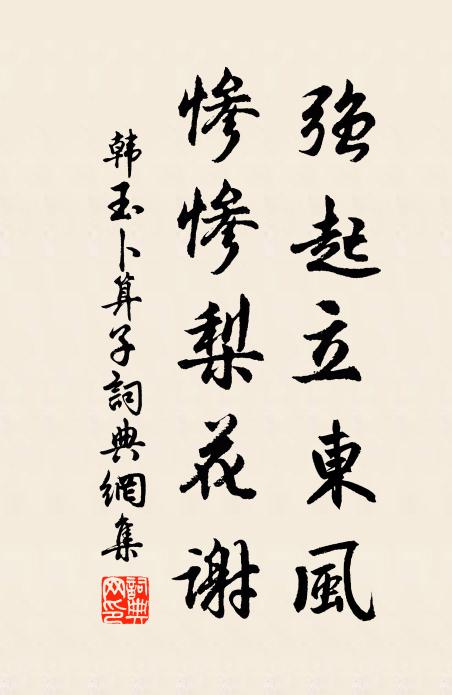 強起立東風
慘慘梨花謝
韓玉卜算子詞典網集
詞典網印